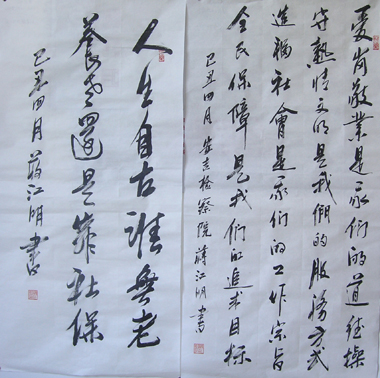 爱岗敬业是我们的道德操
守热情文明是我们的服务方式
造福社會是我们的工作宗旨
全民保障是我们的追求目标
己丑四月安吉检察院蒋江明書
人生自古谁無老
養老還是靠社保
己丑四月蒋江明書